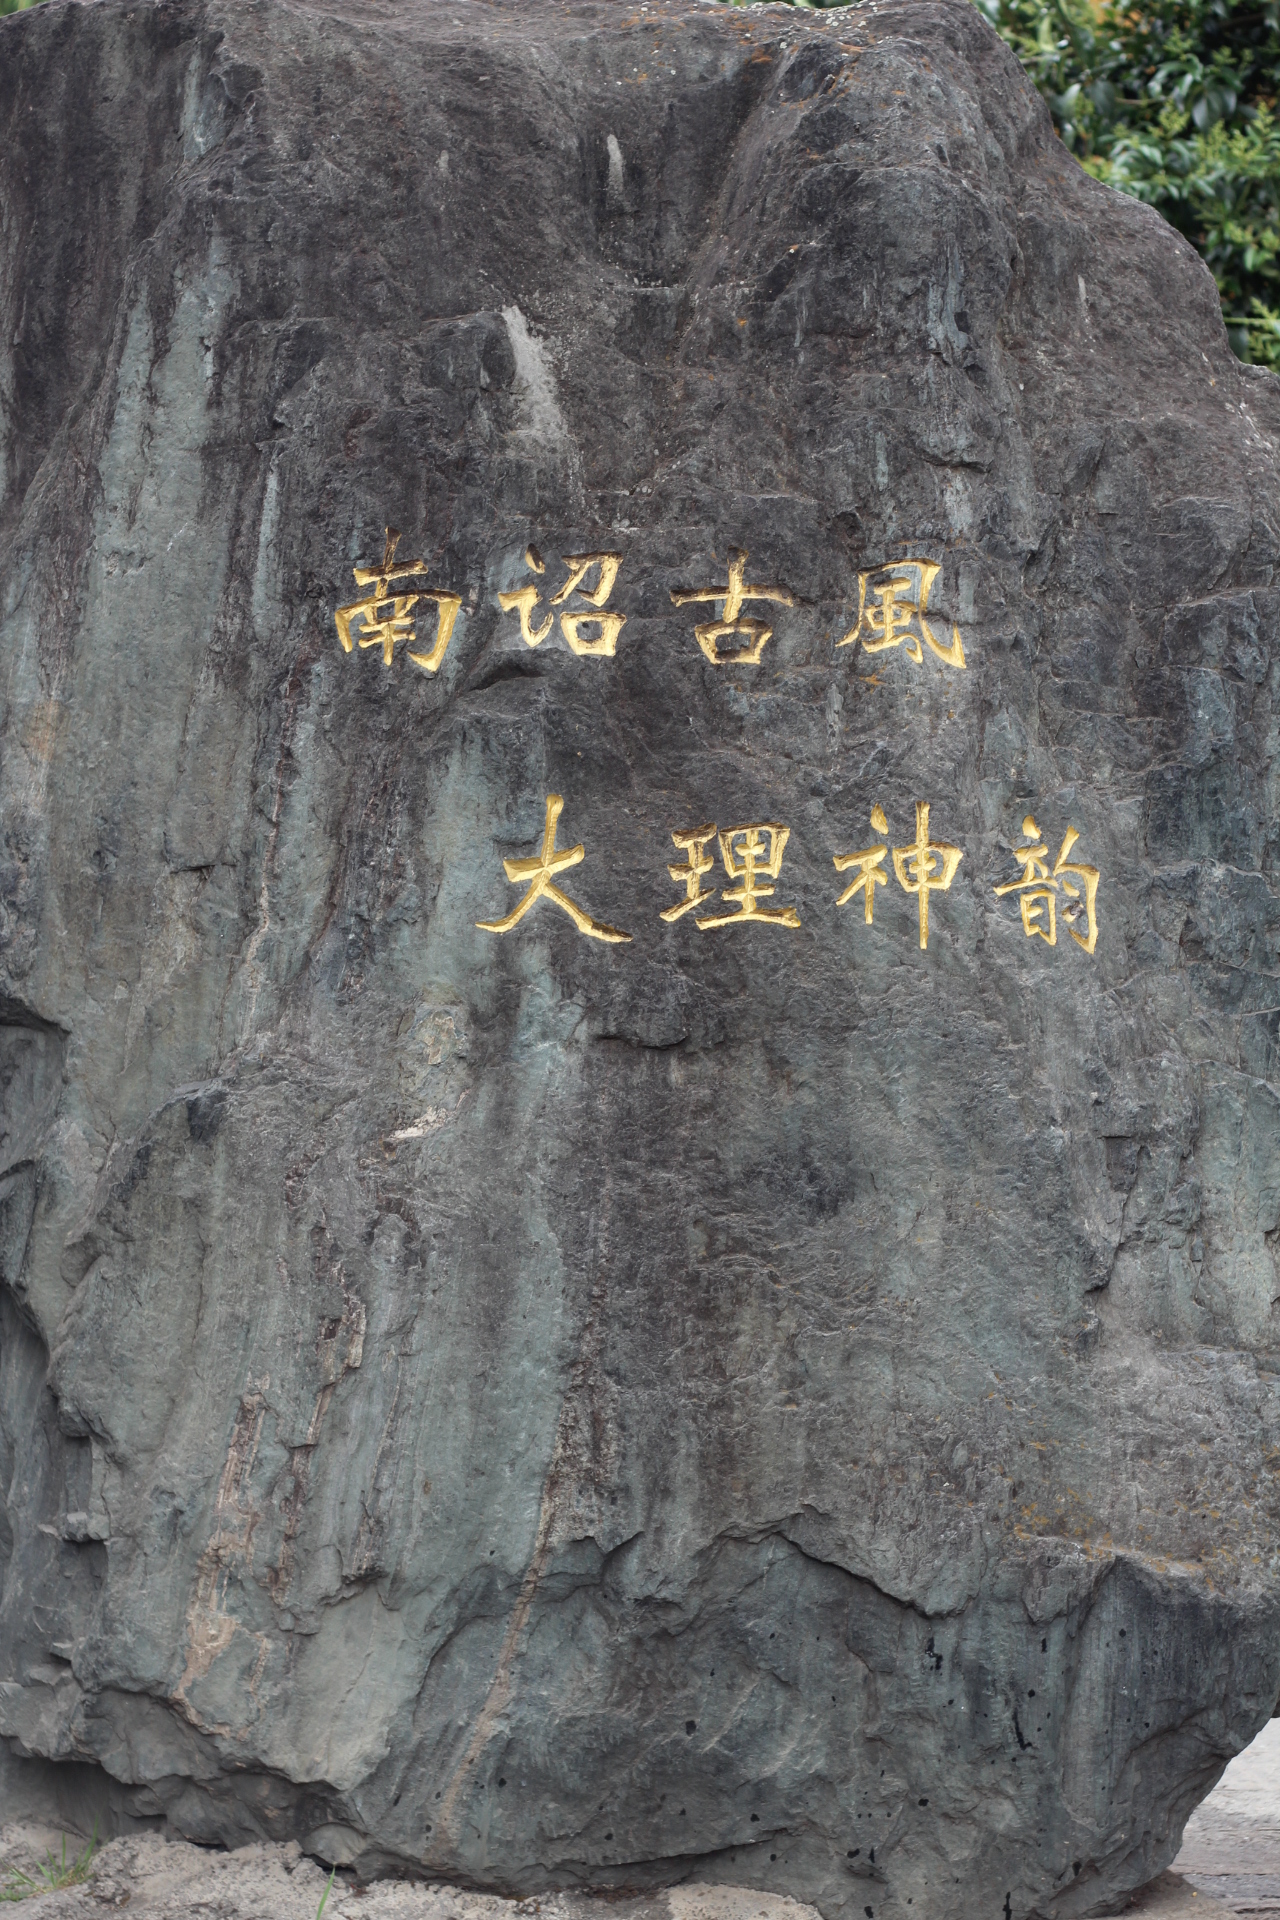 南诏古風
大理神韵